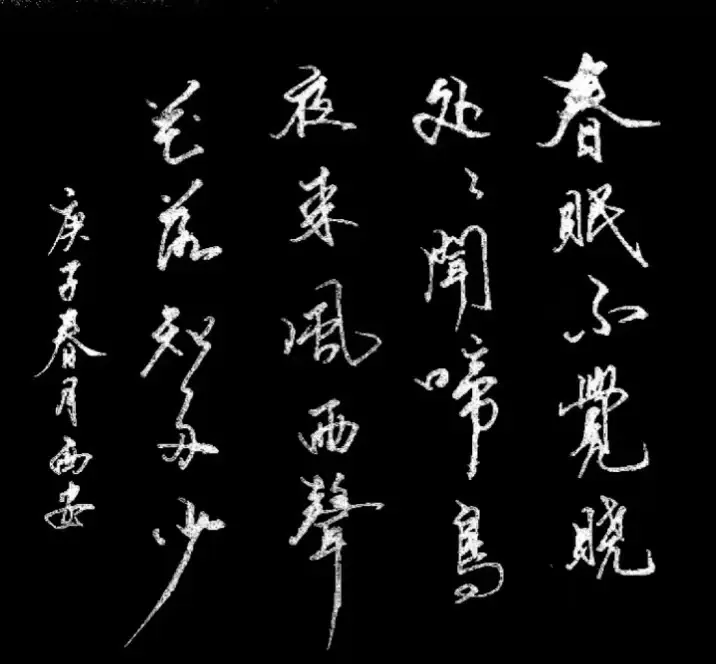 春眠不覺曉
处々聞啼鳥
夜来風雨聲
花落知多少
庚子春月西安